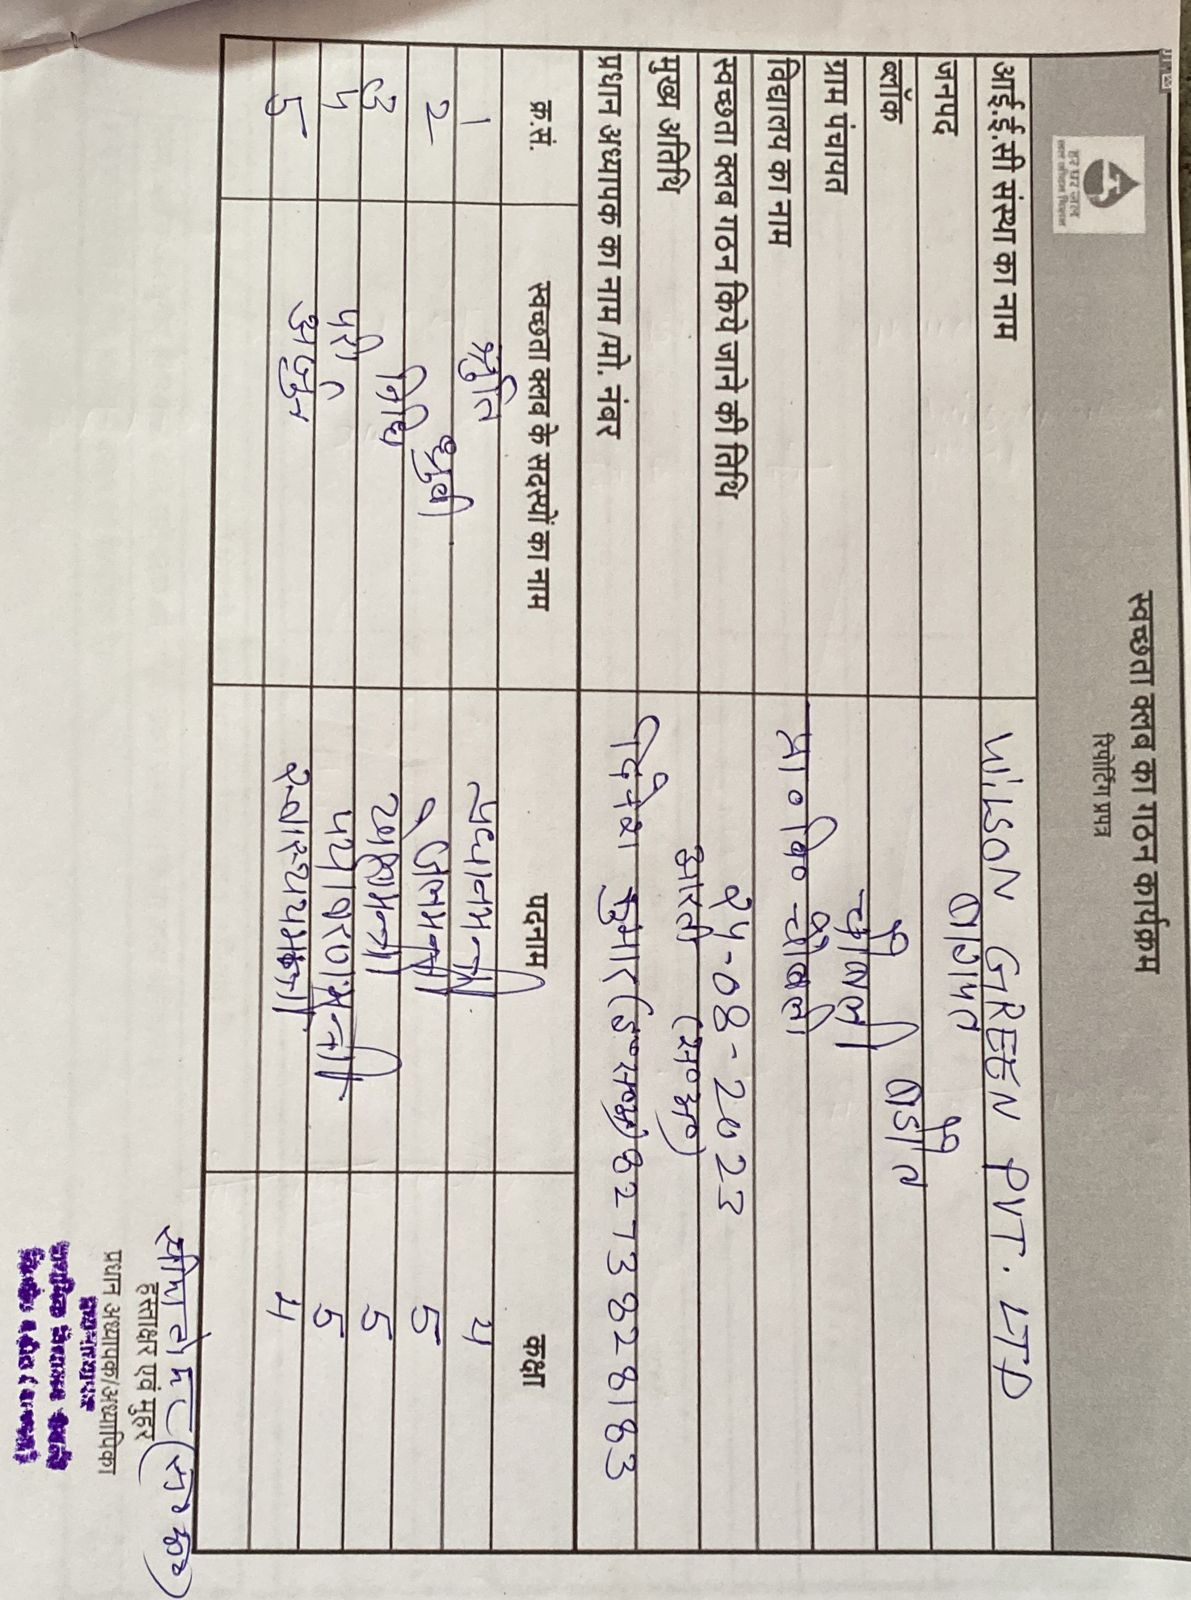 स्वच्छता क्लब का गठन कार्यक्रम
रिपोर्टिंग प्रपत्र
हर घर जल
जल जीवन मिशन
आई.ई.सी संस्था का नाम WILSON GREEN PVT. LTD
जनपद बागपत
ब्लॉक बड़ौत
ग्राम पंचायत
विद्यालय का नाम प्रा० वि०
स्वच्छता क्लब गठन किये जाने की तिथि 24-08-2023
मुख्य अतिथि आरती (स०अ०)
प्रधान अध्यापक का नाम /मो. नंबर दिनेश कुमार 8273828183
क्र.सं. स्वच्छता क्लब के सदस्यों का नाम पदनाम कक्षा
1 प्रधानमन्त्री 4
2 जलमन्त्री 5
3 निधि 5
4 परी पर्यावरणमन्त्री 5
5 अर्जुन स्वास्थ्यमन्त्री 4
हस्ताक्षर एवं मुहर
प्रधान अध्यापक/अध्यापिका